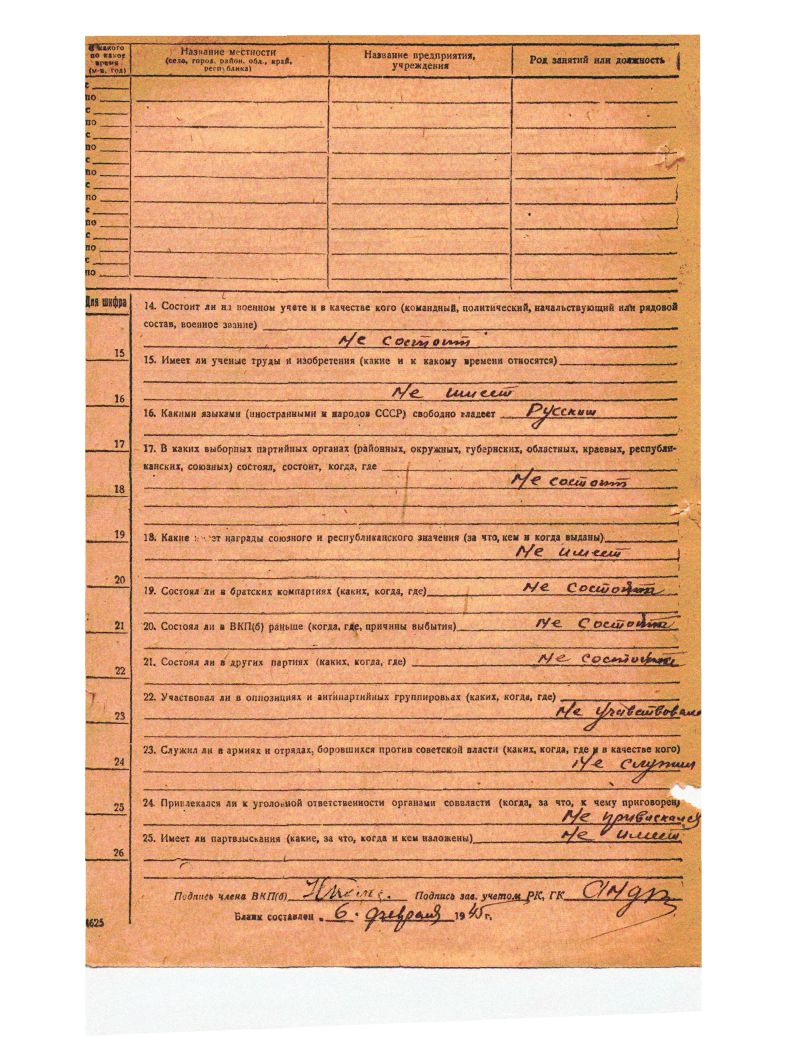 С какого
по какое
время
(м-ц, год)
Название местности
(село, город, район, обл., край,
республика)
Название предприятия,
учреждения
Род занятий или должность
с
по
с
по
с
по
с
по
с
по
с
по
с
по
с
по
Для шифра
14. Состоит ли на военном учете и в качестве кого (командный, политический, начальствующий или рядовой
состав, военное звание)
Не состоит
15
15. Имеет ли ученые труды и изобретения (какие и к какому времени относятся)
Не имеет
16
16. Какими языками (иностранными и народов СССР) свободно владеет Русским
17
17. В каких выборных партийных органах (районных, окружных, губернских, областных, краевых, республи-
канских, союзных) состоял, состоит, когда, где
Не состоит
18
19
18. Какие имеет награды союзного и республиканского значения (за что, кем и когда выданы)
Не имеет
20
19. Состоял ли в братских компартиях (каких, когда, где) Не
21
20. Состоял ли в ВКП(б) раньше (когда, где, причины выбытия) Не
21. Состоял ли в других партиях (каких, когда, где) Не
22
22. Участвовал ли в оппозициях и антипартийных группировках (каких, когда, где)
Не
23
23. Служил ли в армиях и отрядах, боровшихся против советской власти (каких, когда, где и в качестве кого)
Не служил
24
24. Привлекался ли к уголовной ответственности органами соввласти (когда, за что, к чему приговорен)
Не
25
25. Имеет ли партвзыскания (какие, за что, когда и кем наложены) Не имеет
26
Подпись члена ВКП(б) Подпись зав. учетом РК, ГК
Бланк составлен 6. февраля 1945 г.
4625